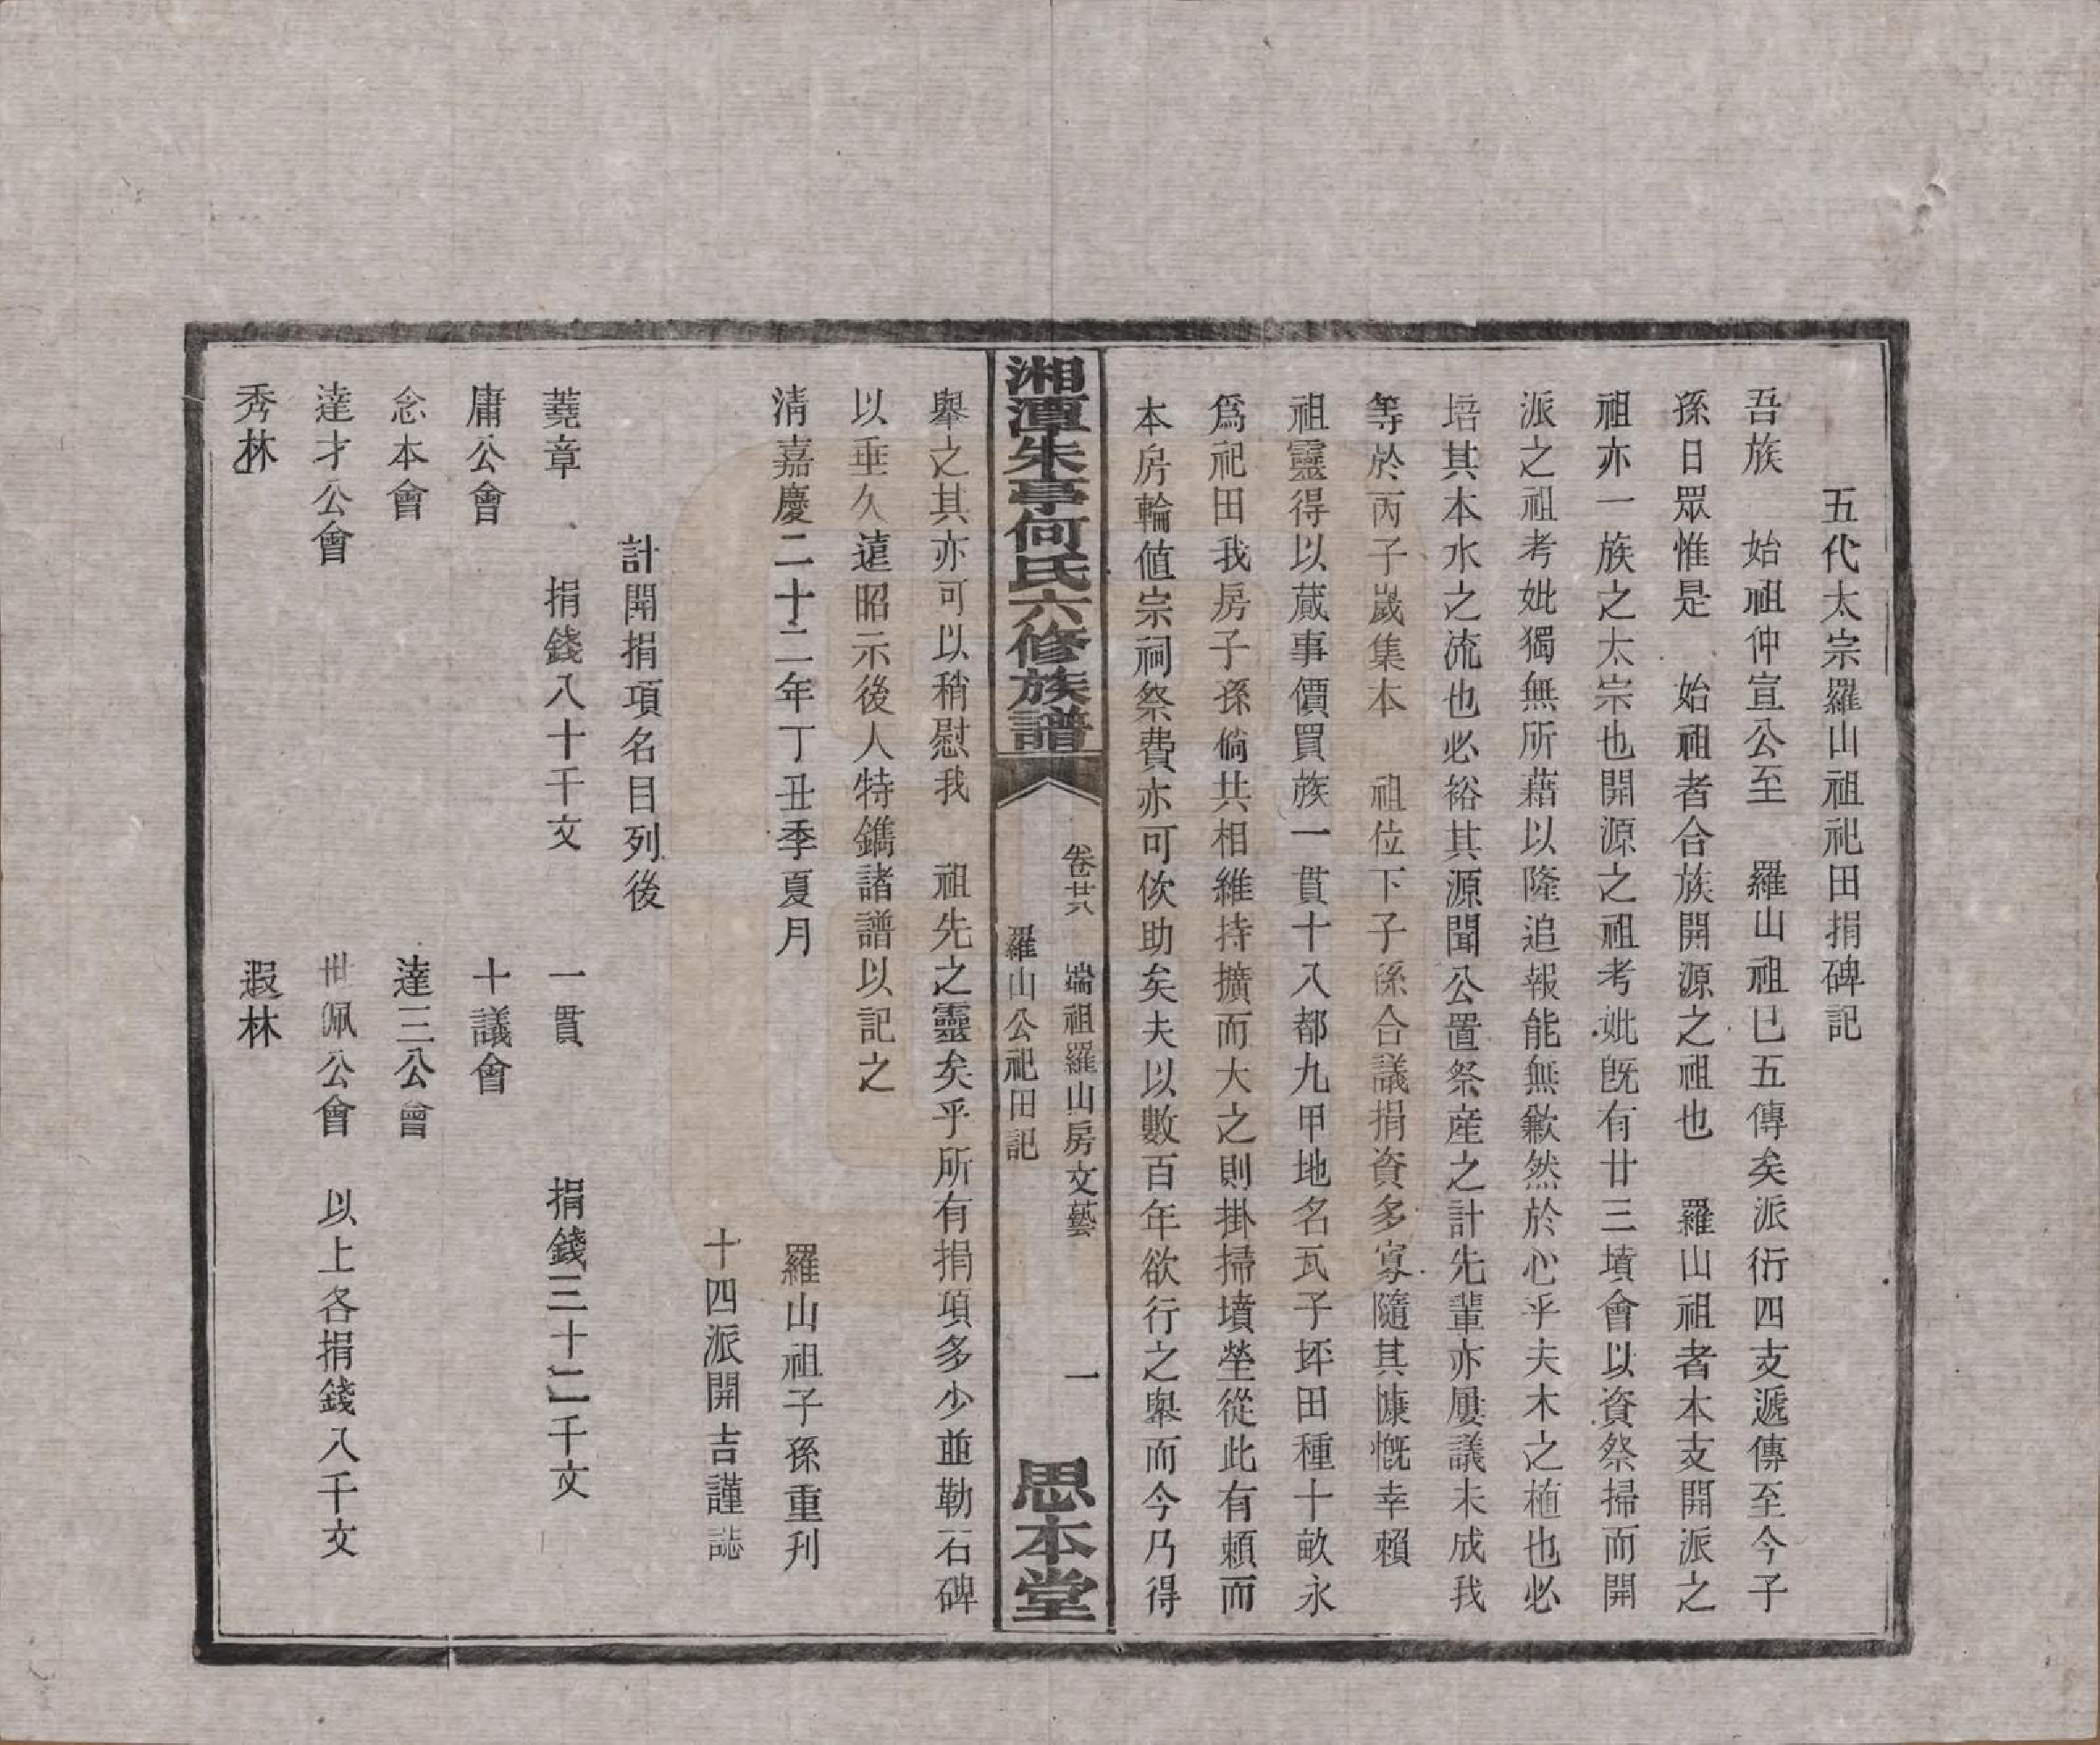 五代太宗羅山祖祀田捐碑記
吾族　始祖仲宣公至　羅山祖已五傳矣派衍四支遞傳至今子
孫日眾惟是　始祖者合族開源之祖也　羅山祖者本支開派之
祖亦一族之太宗也開源之祖考妣旣有廿三墳會以資祭掃而開
派之祖考妣獨無所藉以隆追報能無歉然於心乎夫木之植也必
培其本水之流也必裕其源聞公置祭產之計先輩亦屢議未成我
等於丙子嵗集本　祖位下子孫合議捐資多寡隨其慷慨幸賴
祖靈得以蕆事價買族一貫十八都九甲地名瓦子坪田種十畝永
爲祀田我房子孫倘共相維持擴而大之則掛掃墳塋從此有頼而
本房輪值宗祠祭費亦可佽助矣夫以數百年欲行之舉而今乃得
湘潭朱亭何氏六修族譜
卷廿八　端祖羅山房文藝　一
羅山公祀田記
思本堂
舉之其亦可以稍慰我　祖先之靈矣乎所有捐項多少並勒石碑
以垂久遠昭示後人特鐫諸譜以記之
清嘉慶二十二年丁丑季夏月　羅山祖子孫重刋
十四派開吉謹誌
計開捐項名目列後
蕘章　捐錢八十千文　一貫　捐錢三十二千文
庸公會　十議會
念本會　達三公會
達才公會　世佩公會　以上各捐錢八千文
秀林　遐林